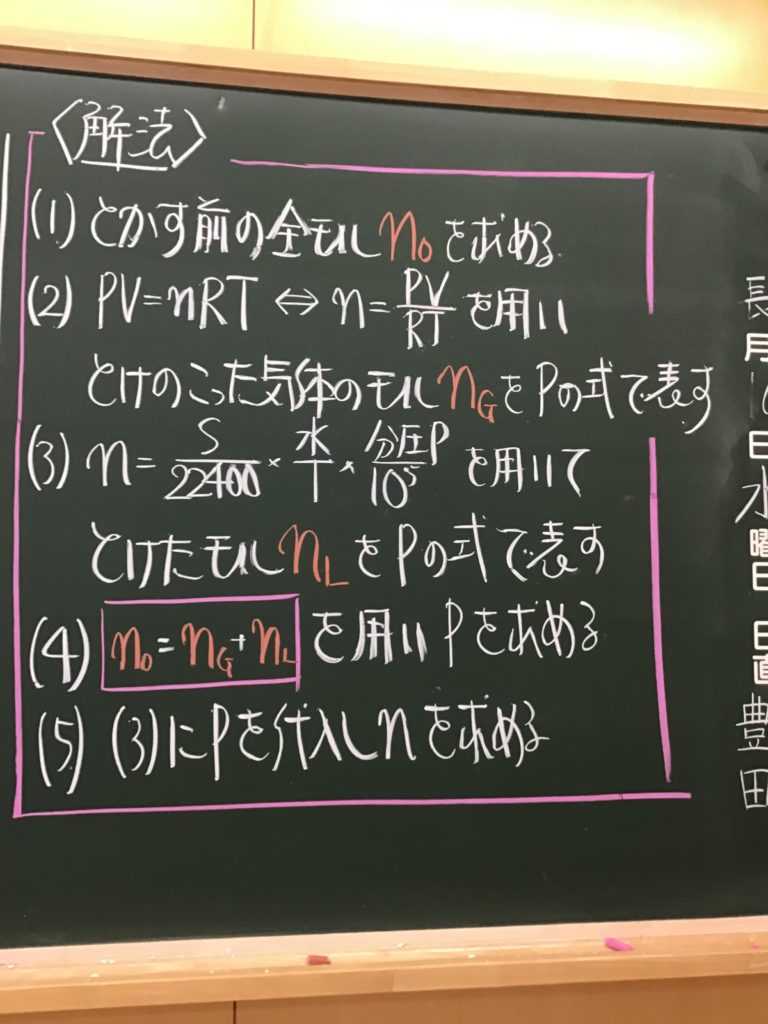 〈解法〉
(1) とかす前の全モル n₀ を求める
(2) PV=nRT ⇔ n=PV/RT を用い
とけのこった気体のモル n_G を Pの式で表す
(3) n= S/22400 × 水/1 × 分圧P/10⁵ を用いて
とけたモル n_L を Pの式で表す
(4) n₀=n_G+n_L を用い Pを求める
(5) (3)にPを代入しnを求める
長
月
日
水
曜
日
日
直
豊
田